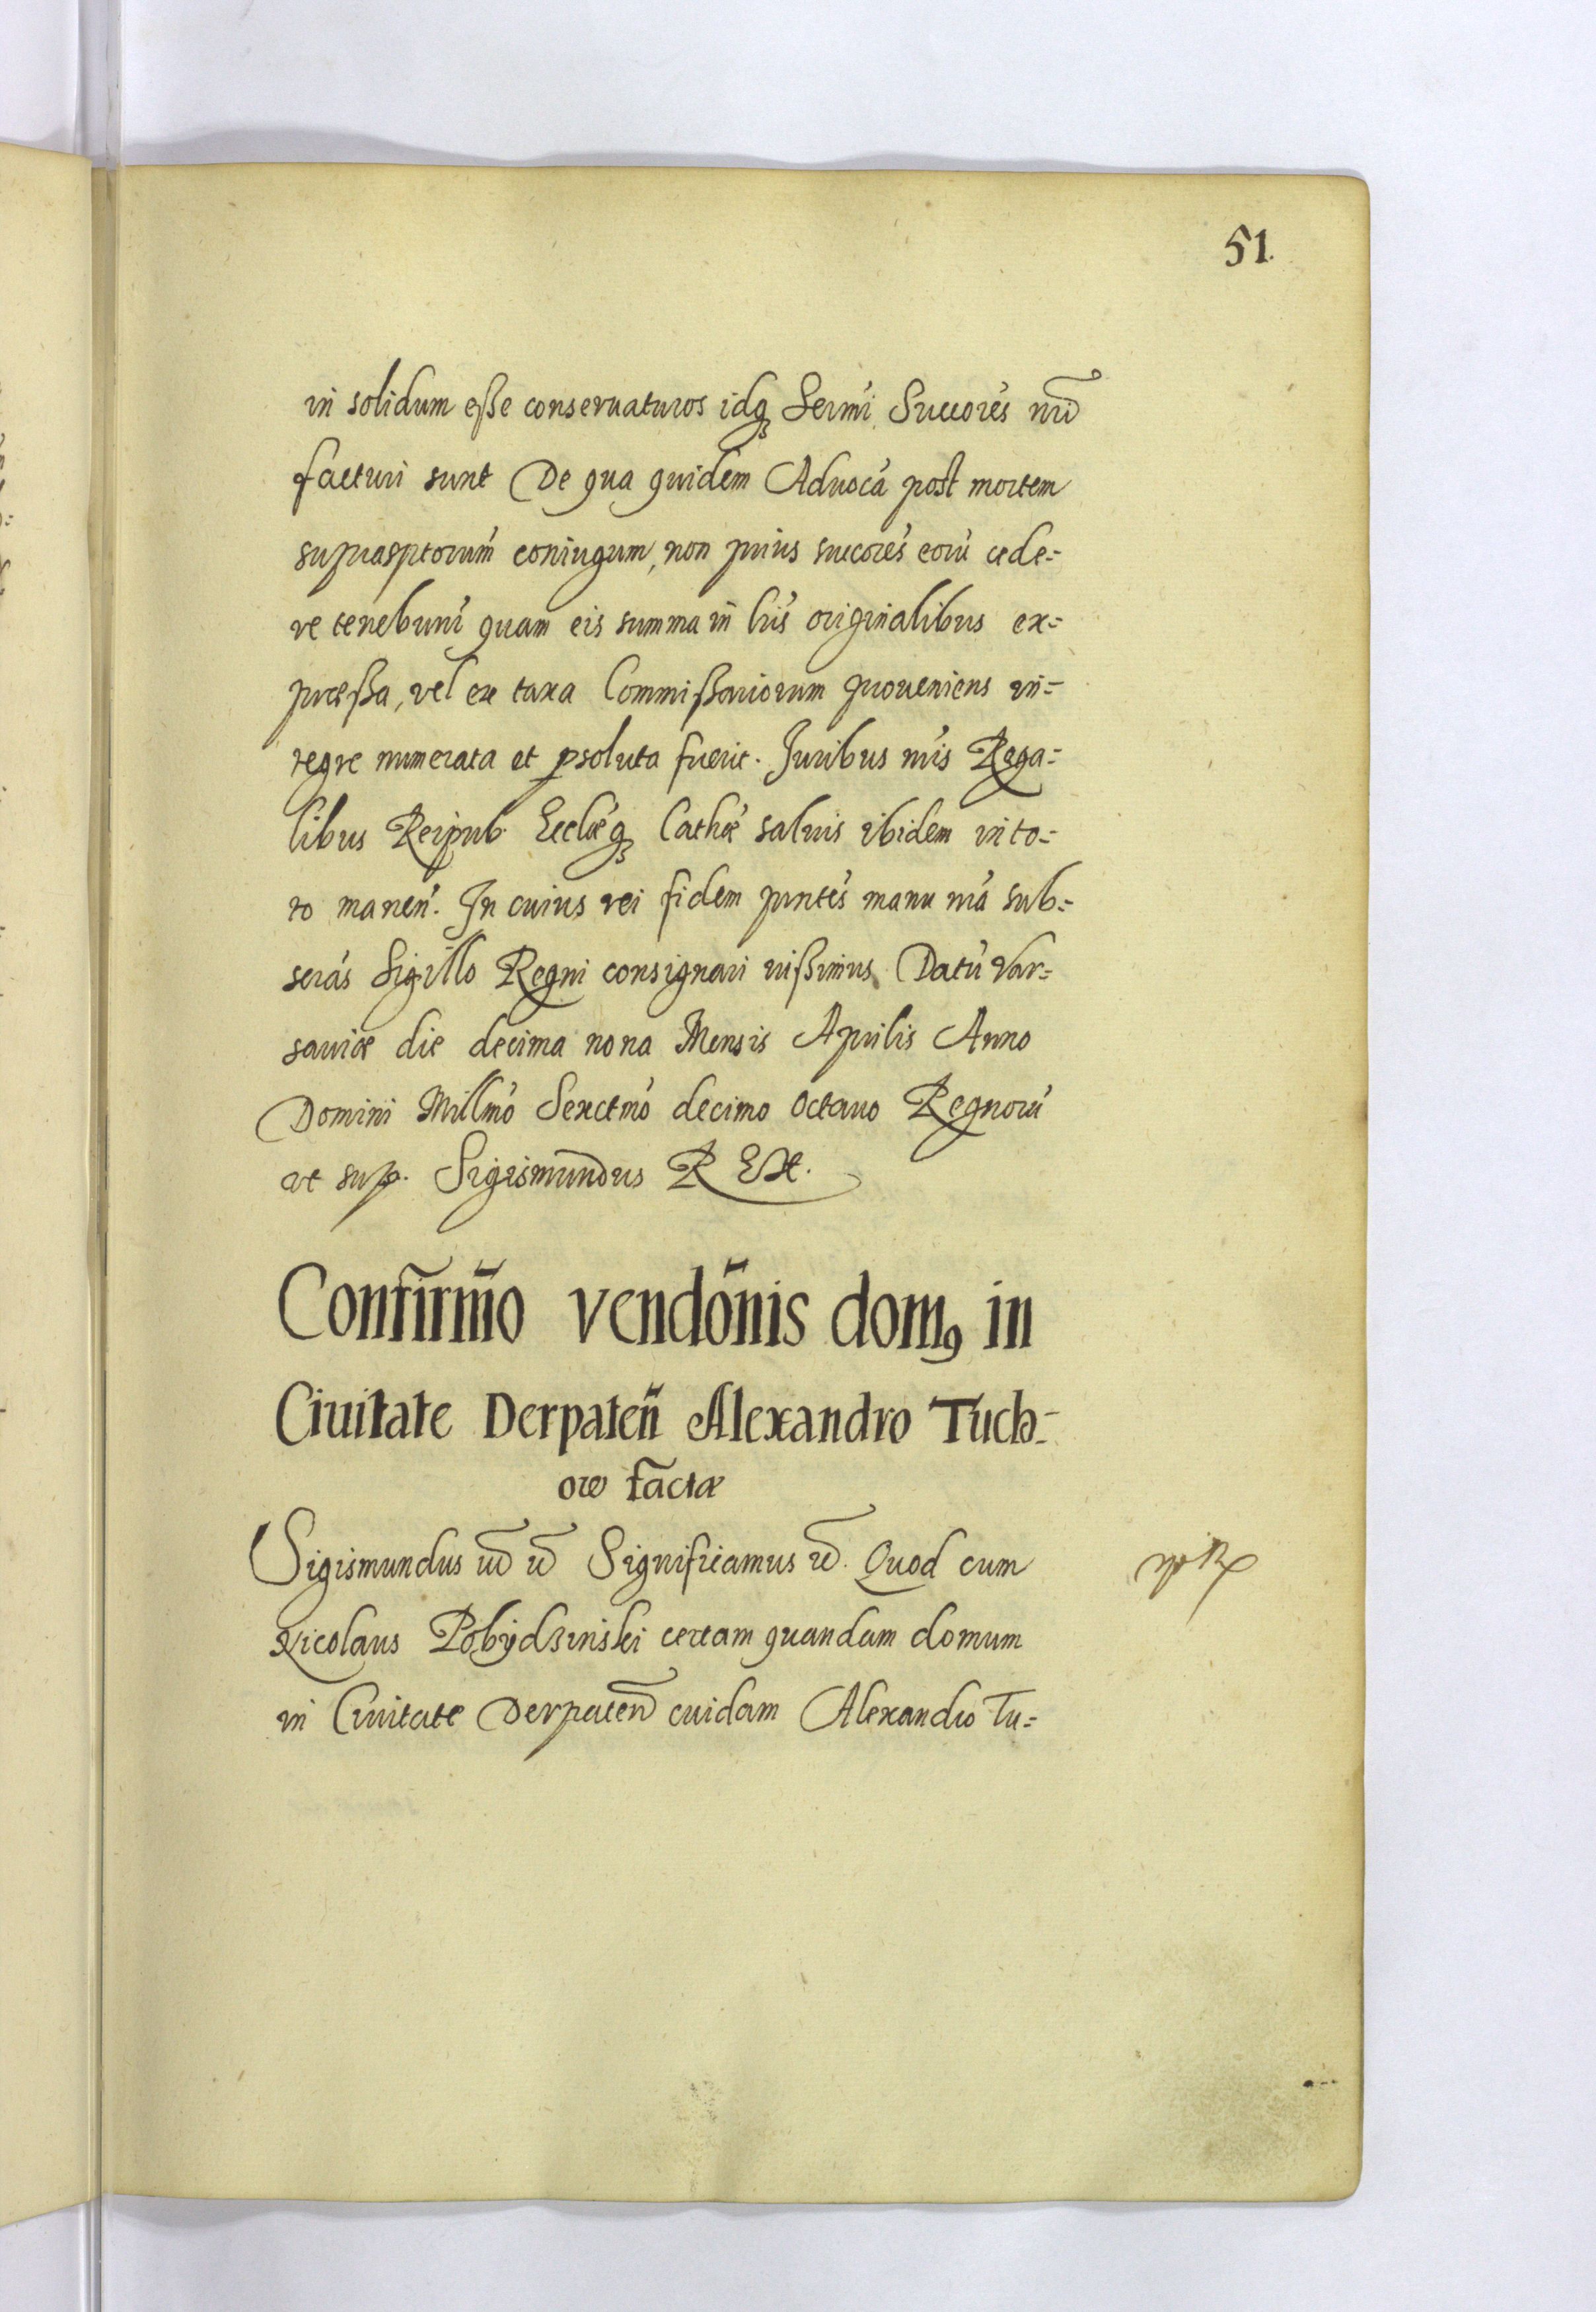 51.
in solidum eße conseruaturos idq̢ Sermi Succores nrĩ
facturi sunt De qua quidem Aduoca post mortem
suprasptorum coniugum, non prius succores eorũ cede=
re tenebunt quam eis summa in lris originalibus ex=
preßa, vel ex taxa Commißariorum proueniens in=
tegre numerata et ꝑsoluta fuerit. Juribus nris Rega=
libus Reipub. Ecclæq̢ Cathæ saluis ibidem in to=
to manen. In cuius rei fidem pntes manu nra sub=
scras Sigillo Regni consignari iußimus. Datũ Var=
sauiæ die decima nona Mensis Aprilis Anno
Domini Millmo Sexctmo decimo Octauo Regnorũ
ut sup. Sigismundus REX.
Confirm̃o vendõnis domꝰ in
Ciuitate Derpateñ Alexandro Tuch-
ore factæ
Sigismundus Significamus Quod cum
Nicolaus Pobijdzinski certam quandam domum
in Ciuitate Derpateñ cuidam Alexandro Tu=